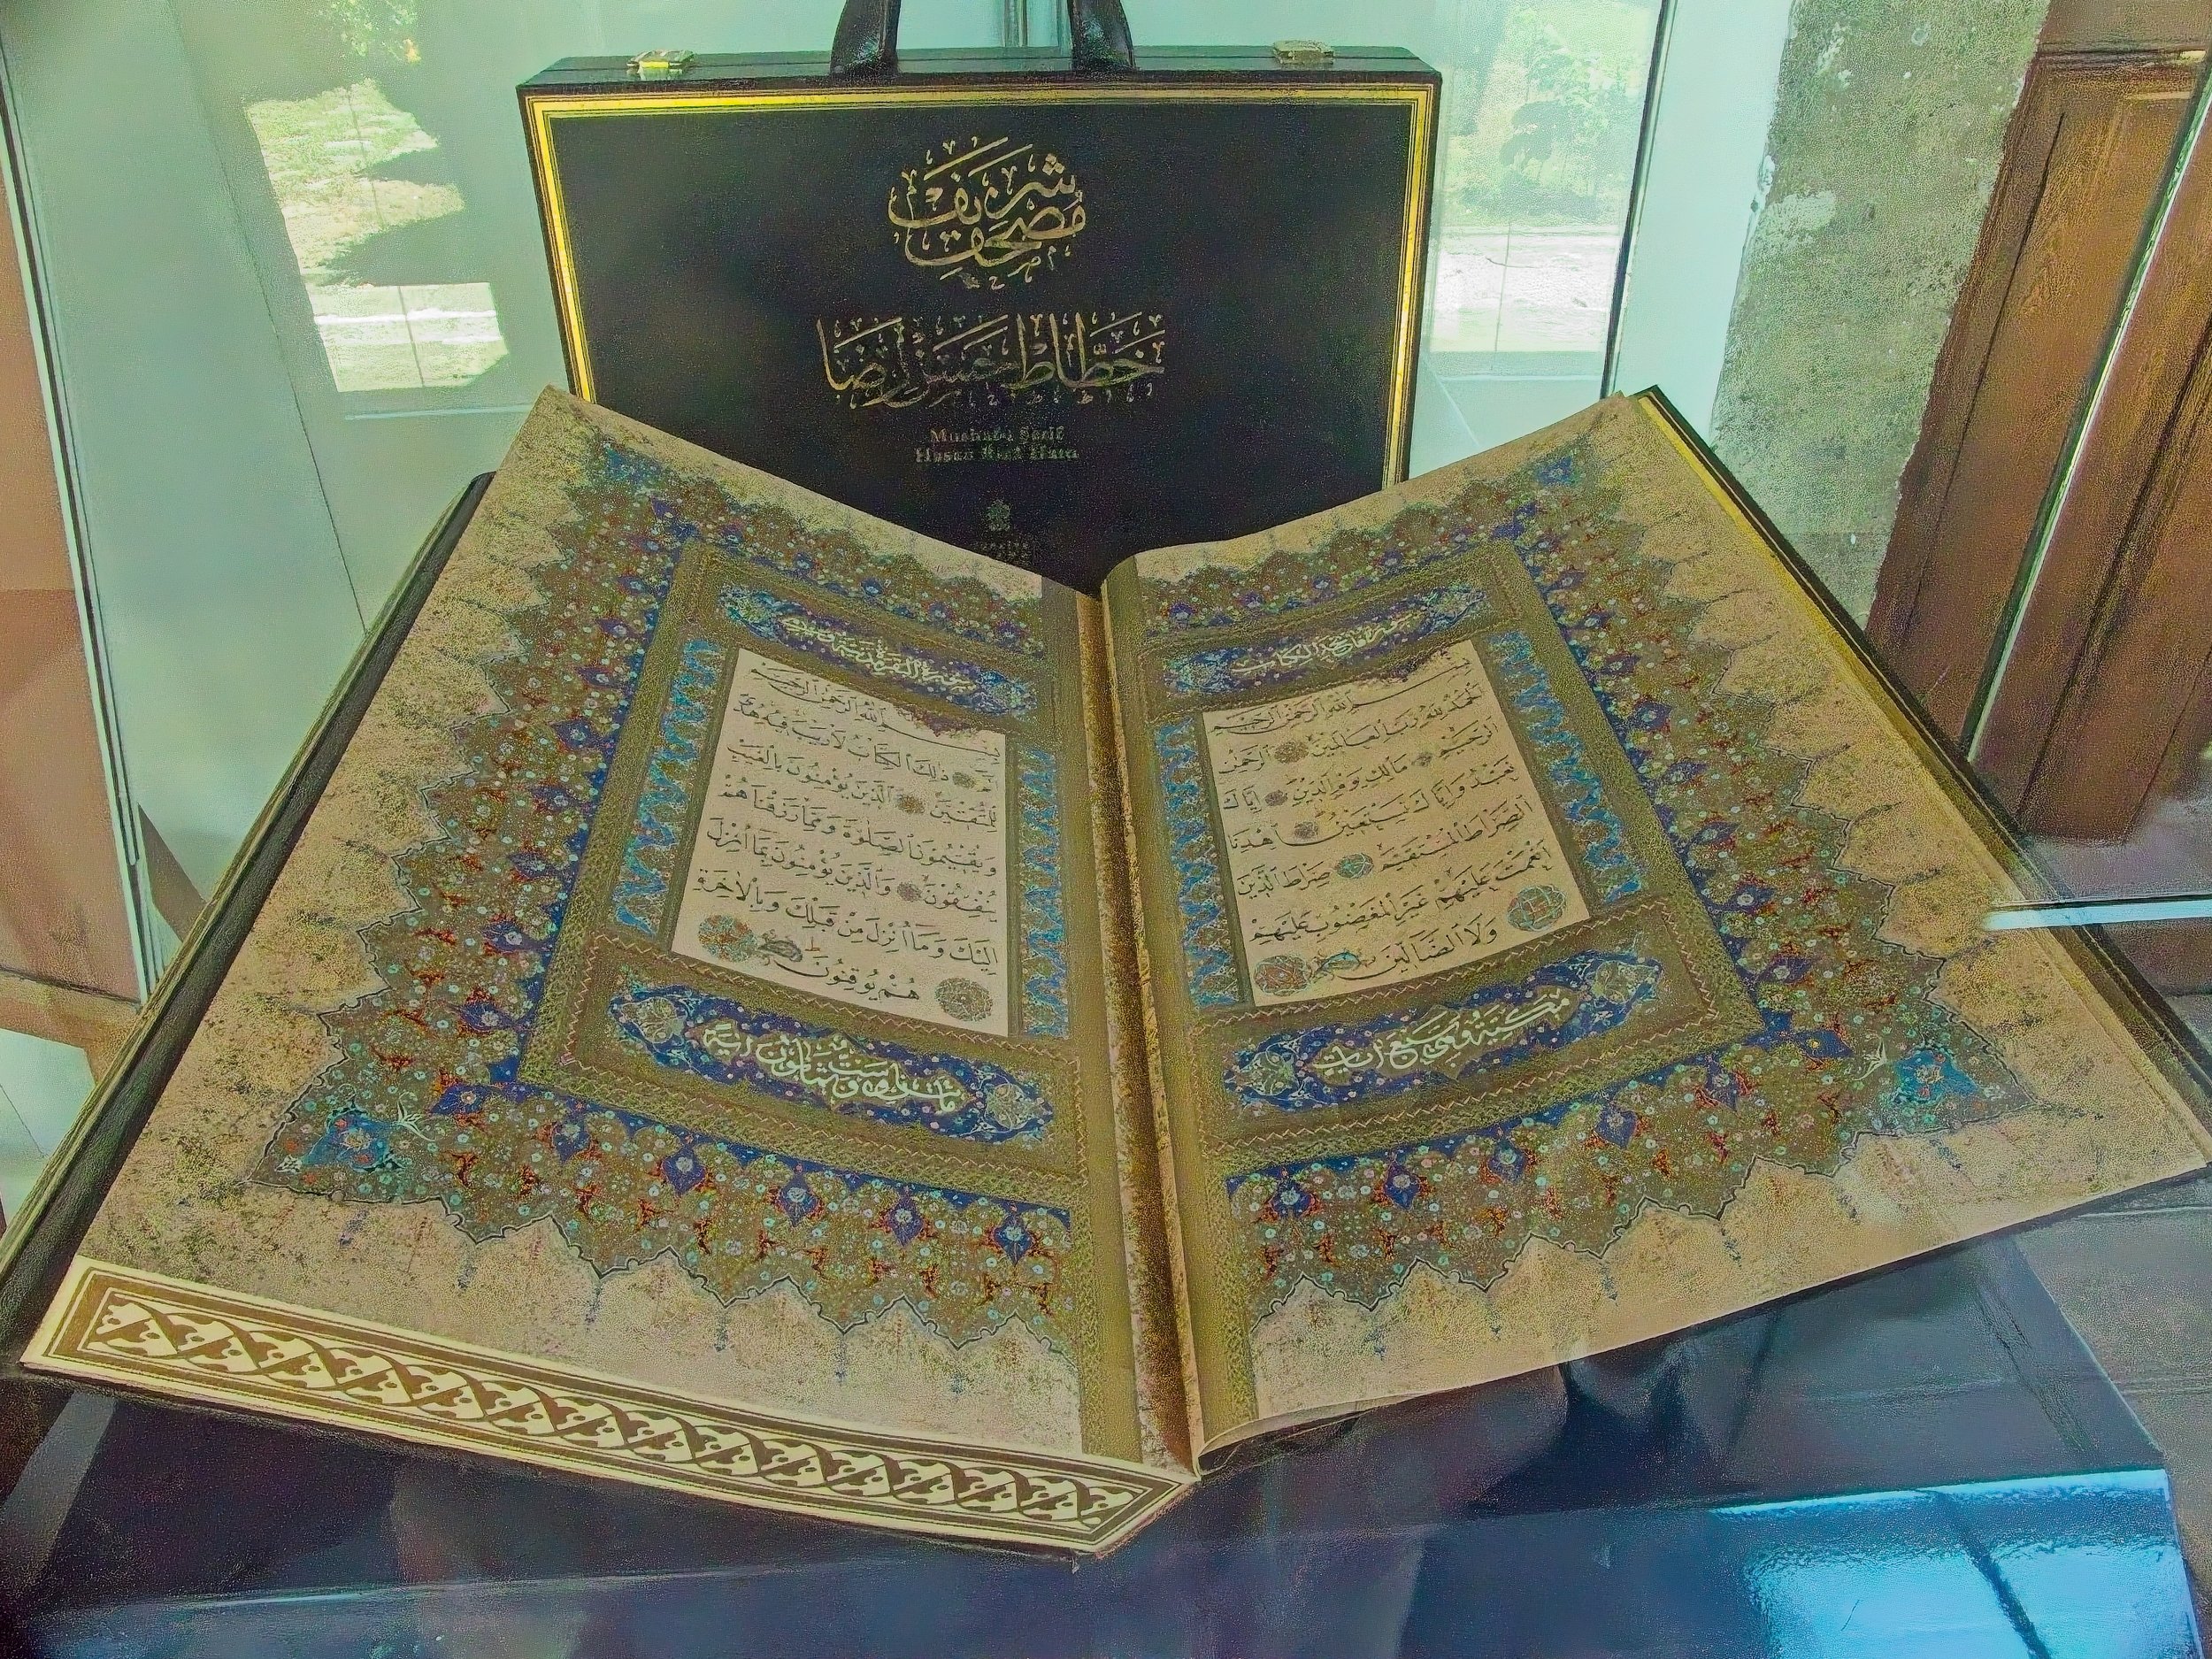 مصحف شريف
خطاط حسن رضا
Mushaf-ı Şerif
Hasan Rıza Hattı
سورة فاتحة الكتاب
بسم الله الرحمن الرحيم
الْحَمْدُ لِلّٰهِ رَبِّ الْعَالَمِينَ الرَّحْمٰنِ
الرَّحِيمِ مَالِكِ يَوْمِ الدِّينِ اِيَّاكَ
نَعْبُدُ وَاِيَّاكَ نَسْتَعِينُ اِهْدِنَا
الصِّرَاطَ الْمُسْتَقِيمَ صِرَاطَ الَّذِينَ
اَنْعَمْتَ عَلَيْهِمْ غَيْرِ الْمَغْضُوبِ عَلَيْهِمْ
وَلَا الضَّالِّينَ
مكية وهي سبع آيات
سورة البقرة مدنية وهي
بسم الله الرحمن الرحيم
الم ذٰلِكَ الْكِتَابُ لَا رَيْبَ فِيهِ هُدًى
لِلْمُتَّقِينَ الَّذِينَ يُؤْمِنُونَ بِالْغَيْبِ
وَيُقِيمُونَ الصَّلٰوةَ وَمِمَّا رَزَقْنَاهُمْ
يُنْفِقُونَ وَالَّذِينَ يُؤْمِنُونَ بِمَا اُنْزِلَ
اِلَيْكَ وَمَا اُنْزِلَ مِنْ قَبْلِكَ وَبِالْاٰخِرَةِ
هُمْ يُوقِنُونَ
مائتان وست وثمانون آية